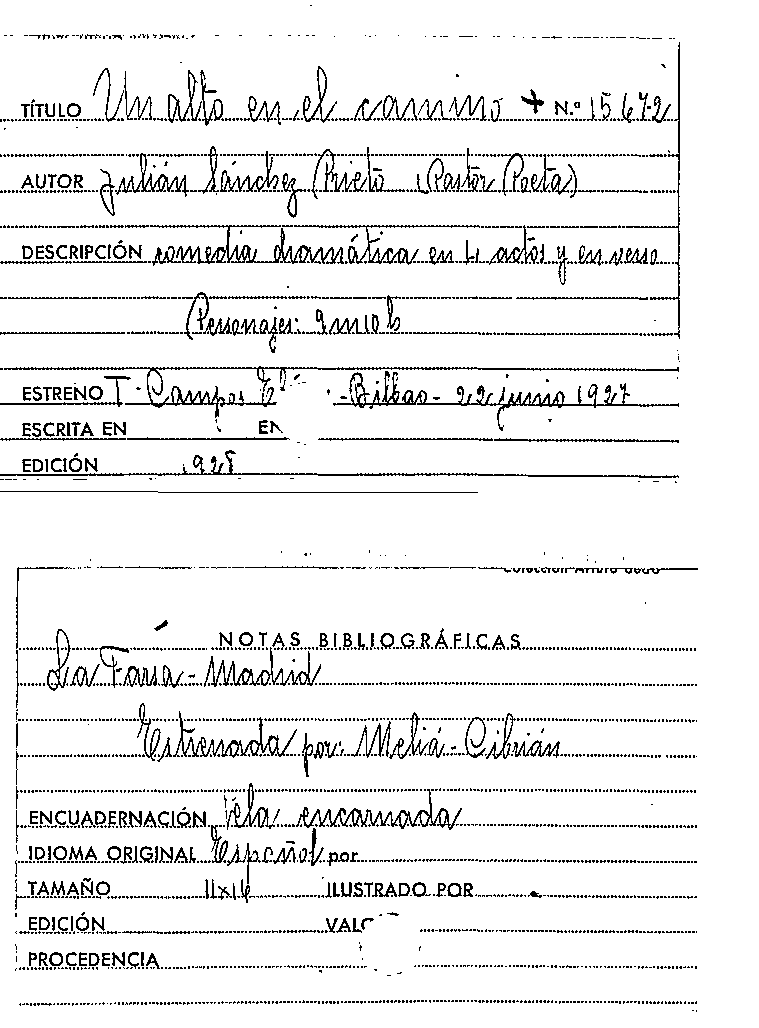 TÍTULO Un alto en el camino + N.º 15.672
AUTOR Julián Sánchez Prieto (Pastor Poeta)
DESCRIPCIÓN comedia dramática en 4 actos y en verso
Personajes: 9 m 10 h
ESTRENO T. Campos - Bilbao - 22 junio 1927
ESCRITA EN EN
EDICIÓN 1928
NOTAS BIBLIOGRÁFICAS
La Farsa - Madrid
Estrenada por: Meliá - Cibrián
ENCUADERNACIÓN Tela encarnada
IDIOMA ORIGINAL Español por
TAMAÑO 11x16 ILUSTRADO POR
EDICIÓN
PROCEDENCIA